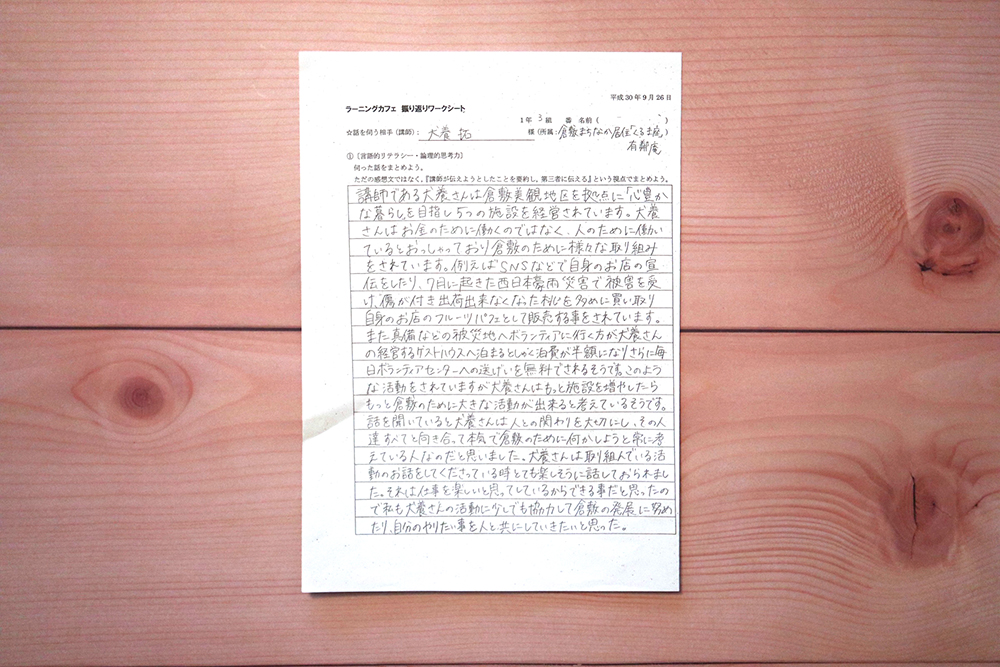 平成30年9月26日
ラーニングカフェ 振り返りワークシート
1年 3組 番 名前( )
☆話を伺う相手(講師): 犬養 拓 様(所属:倉敷まちなか居住「くるま座」
有鄰庵
①〔言語的リテラシー・論理的思考力〕
伺った話をまとめよう。
ただの感想文ではなく、『講師が伝えようとしたことを要約し、第三者に伝える』という視点でまとめよう。
講師である犬養さんは倉敷美観地区を拠点に「心豊か
な暮らし」を目指し5つの施設を経営されています。犬養
さんはお金のために働くのではなく、人のために働い
ているとおっしゃっており倉敷のために様々な取り組み
をされています。例えばSNSなどで自身のお店の宣
伝をしたり、7月に起きた西日本豪雨災害で被害を受
け、傷が付き出荷出来なくなった桃を多めに買い取り
自身のお店のフルーツパフェとして販売する事をされています。
また真備などの被災地へボランティアに行く方が犬養さん
の経営するゲストハウスへ泊まるとしゅく泊費が半額になりさらに毎
日ボランティアセンターへの送げいを無料でされるそうです。このよう
な活動をされていますが犬養さんはもっと施設を増やしたら
もっと倉敷のために大きな活動が出来ると考えているそうです。
話を聞いていると犬養さんは人との関わりを大切にし、その人
達すべてと向き合って本気で倉敷のために何かしようと常に考
えている人なのだと思いました。犬養さんは取り組んでいる活
動のお話をしてくださっている時とても楽しそうに話しておられまし
た。それは仕事を楽しいと思ってしているからできる事だと思ったの
で私も犬養さんの活動に少しでも協力して倉敷の発展に努め
たり、自分のやりたい事を人と共にしていきたいと思った。